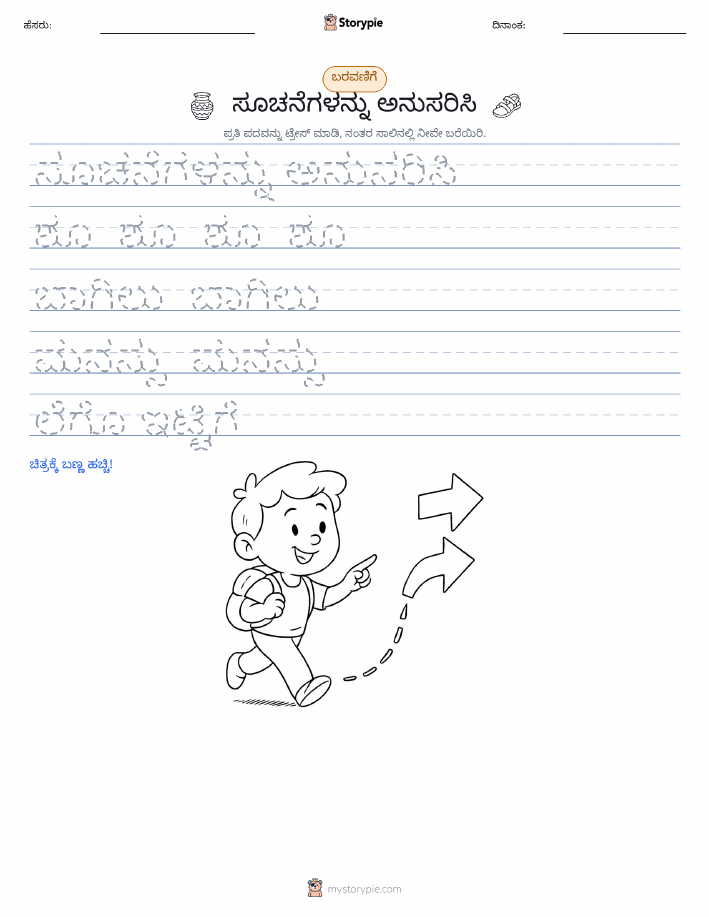 ಹೆಸರು: Storypie ದಿನಾಂಕ:
ಬರವಣಿಗೆ
ಸೂಚನೆಗಳನ್ನು ಅನುಸರಿಸಿ
ಪ್ರತಿ ಪದವನ್ನು ಟ್ರೇಸ್ ಮಾಡಿ, ನಂತರ ಸಾಲಿನಲ್ಲಿ ನೀವೇ ಬರೆಯಿರಿ.
ಸೂಚನೆಗಳನ್ನು ಅನುಸರಿಸಿ
ಶೂ ಶೂ ಶೂ ಶೂ
ಬಾಗಿಲು ಬಾಗಿಲು
ಮನಸ್ಸು ಮನಸ್ಸು
ಲೆಗೊ ಇಟ್ಟಿಗೆ
ಚಿತ್ರಕ್ಕೆ ಬಣ್ಣ ಹಚ್ಚಿ!
mystorypie.com